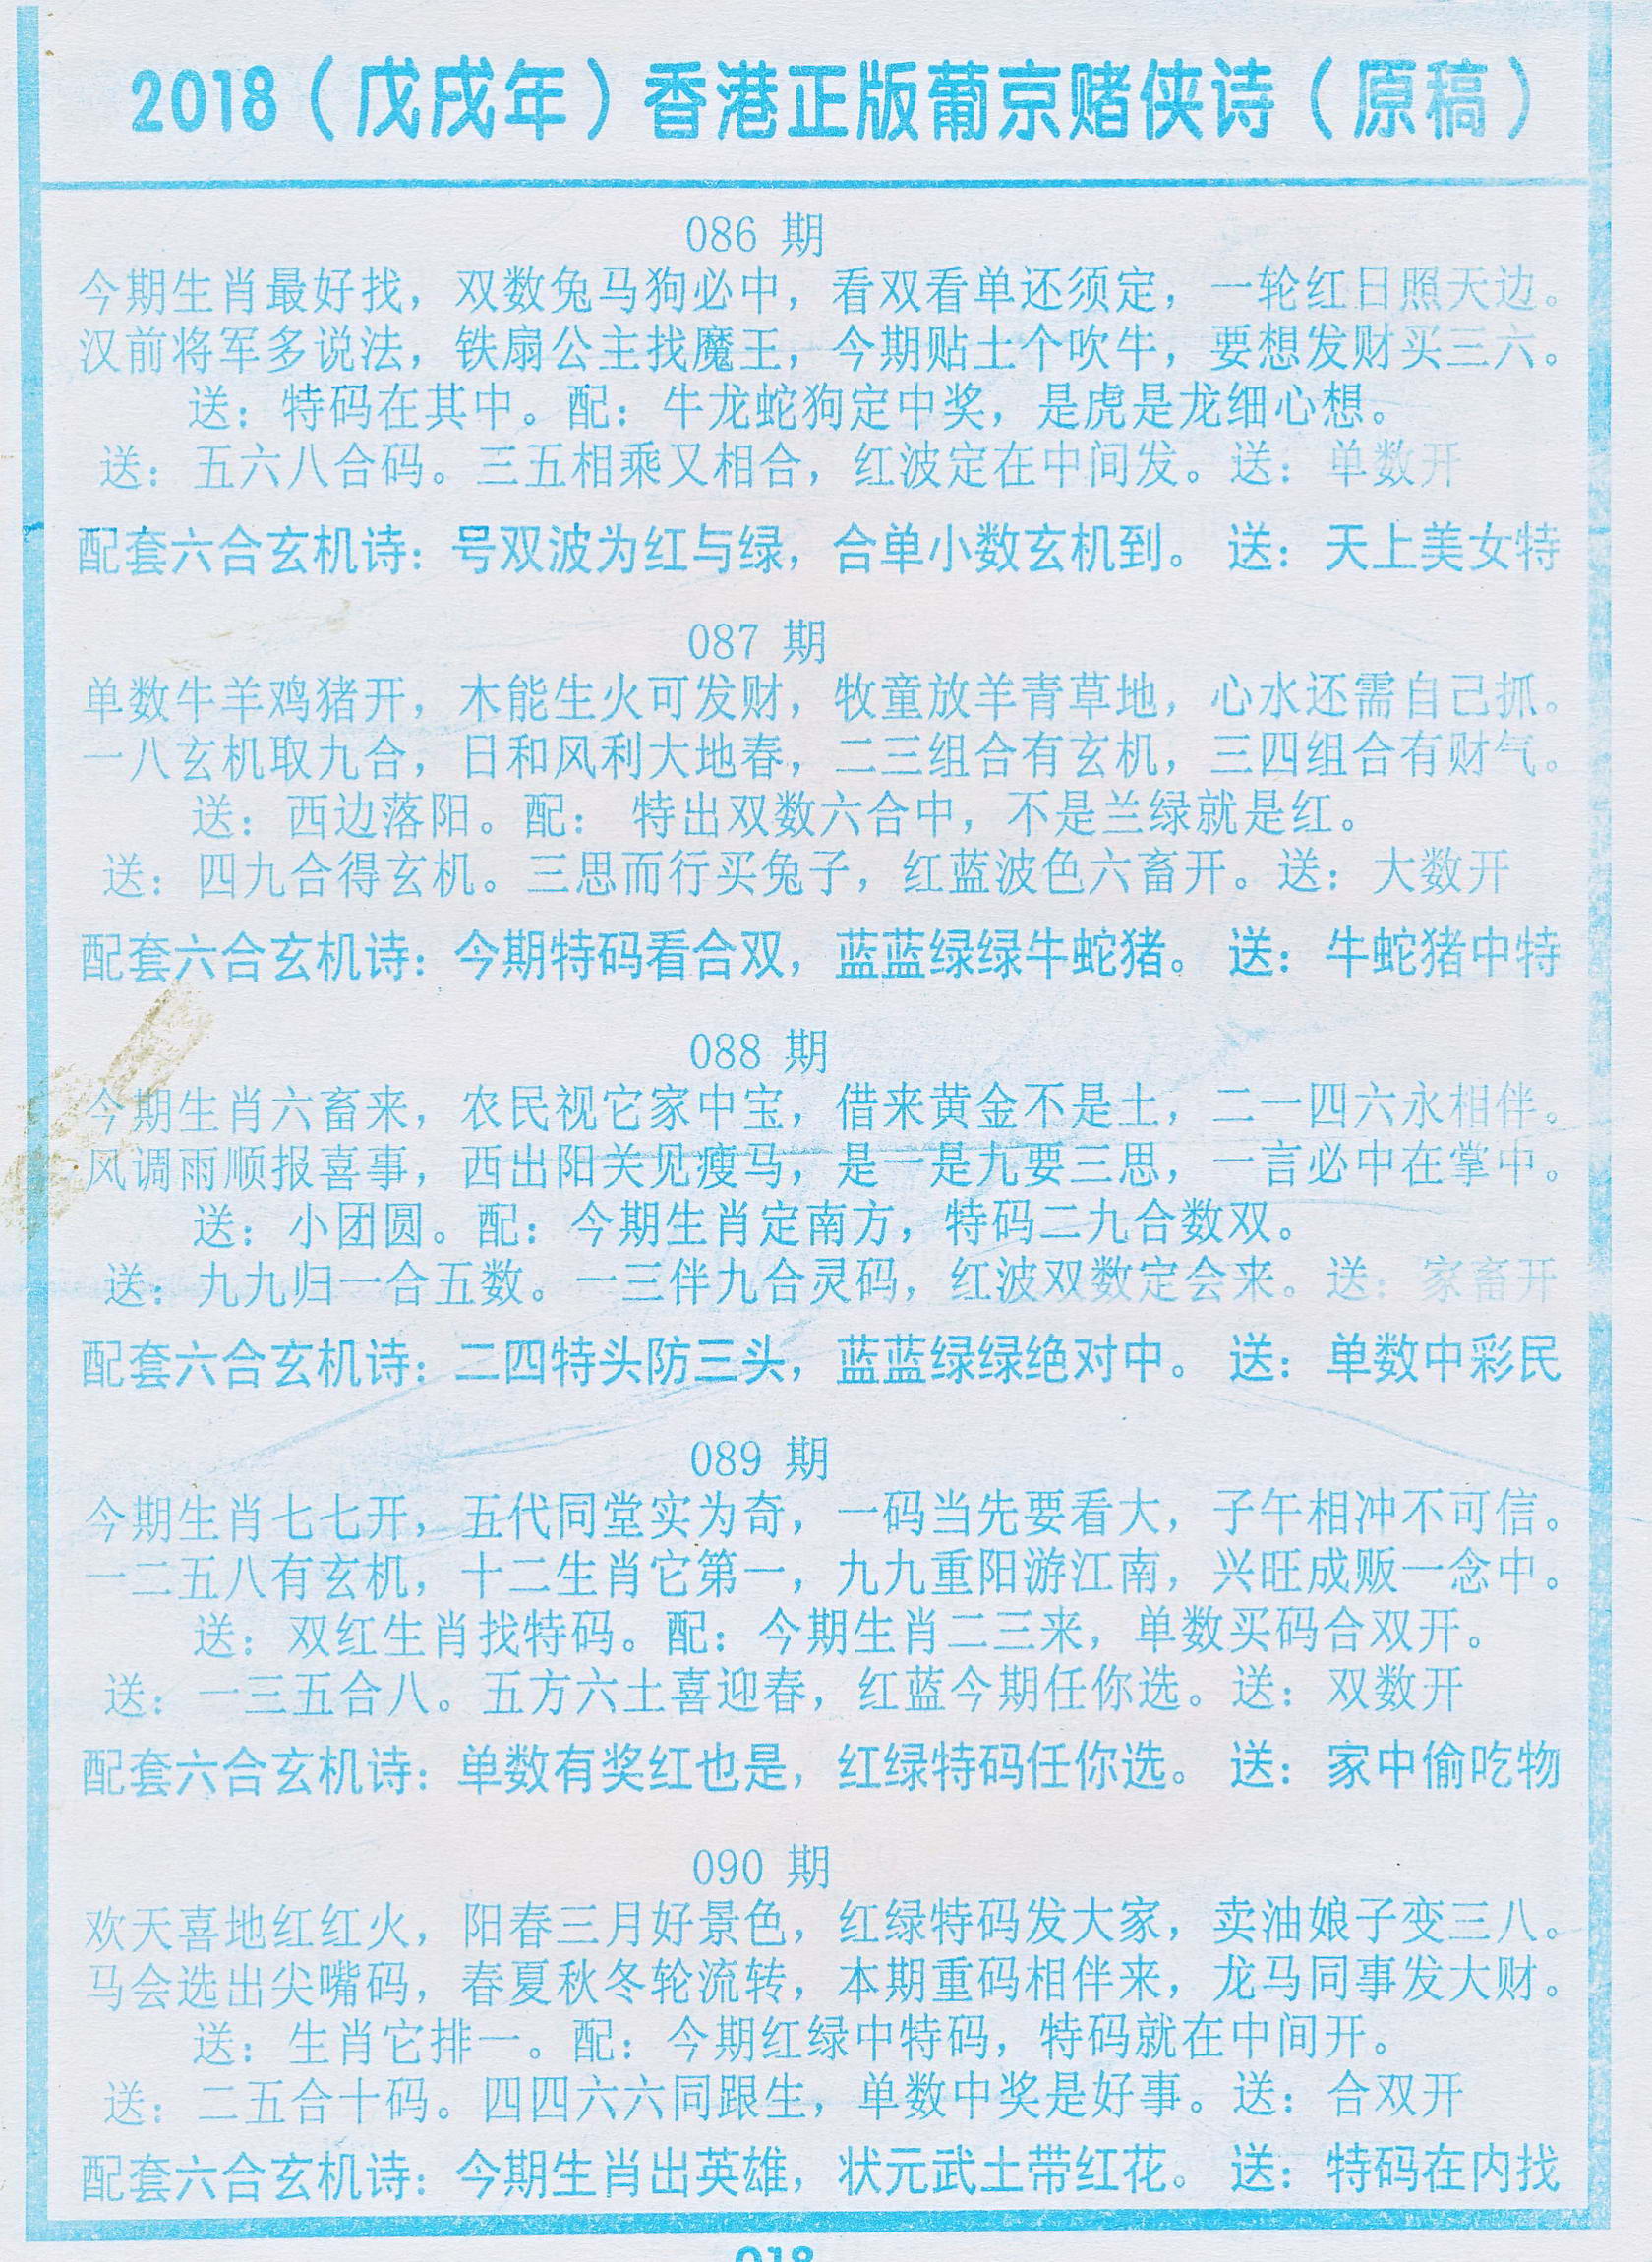 2018（戊戌年）香港正版葡京赌侠诗（原稿）
086 期
今期生肖最好找，双数兔马狗必中，看双看单还须定，一轮红日照天边。
汉前将军多说法，铁扇公主找魔王，今期贴士个吹牛，要想发财买三六。
送：特码在其中。配：牛龙蛇狗定中奖，是虎是龙细心想。
送：五六八合码。三五相乘又相合，红波定在中间发。送：单数开
配套六合玄机诗：号双波为红与绿，合单小数玄机到。 送：天上美女特
087 期
单数牛羊鸡猪开，木能生火可发财，牧童放羊青草地，心水还需自己抓。
一八玄机取九合，日和风利大地春，二三组合有玄机，三四组合有财气。
送：西边落阳。配： 特出双数六合中，不是兰绿就是红。
送：四九合得玄机。三思而行买兔子，红蓝波色六畜开。送：大数开
配套六合玄机诗：今期特码看合双，蓝蓝绿绿牛蛇猪。 送：牛蛇猪中特
088 期
今期生肖六畜来，农民视它家中宝，借来黄金不是土，二一四六永相伴。
风调雨顺报喜事，西出阳关见瘦马，是一是九要三思，一言必中在掌中。
送：小团圆。配：今期生肖定南方，特码二九合数双。
送：九九归一合五数。一三伴九合灵码，红波双数定会来。送：家畜开
配套六合玄机诗：二四特头防三头，蓝蓝绿绿绝对中。 送：单数中彩民
089 期
今期生肖七七开，五代同堂实为奇，一码当先要看大，子午相冲不可信。
一二五八有玄机，十二生肖它第一，九九重阳游江南，兴旺成贩一念中。
送：双红生肖找特码。配：今期生肖二三来，单数买码合双开。
送：一三五合八。五方六土喜迎春，红蓝今期任你选。送：双数开
配套六合玄机诗：单数有奖红也是，红绿特码任你选。 送：家中偷吃物
090 期
欢天喜地红红火，阳春三月好景色，红绿特码发大家，卖油娘子变三八。
马会选出尖嘴码，春夏秋冬轮流转，本期重码相伴来，龙马同事发大财。
送：生肖它排一。配：今期红绿中特码，特码就在中间开。
送：二五合十码。四四六六同跟生，单数中奖是好事。送：合双开
配套六合玄机诗：今期生肖出英雄，状元武士带红花。 送：特码在内找